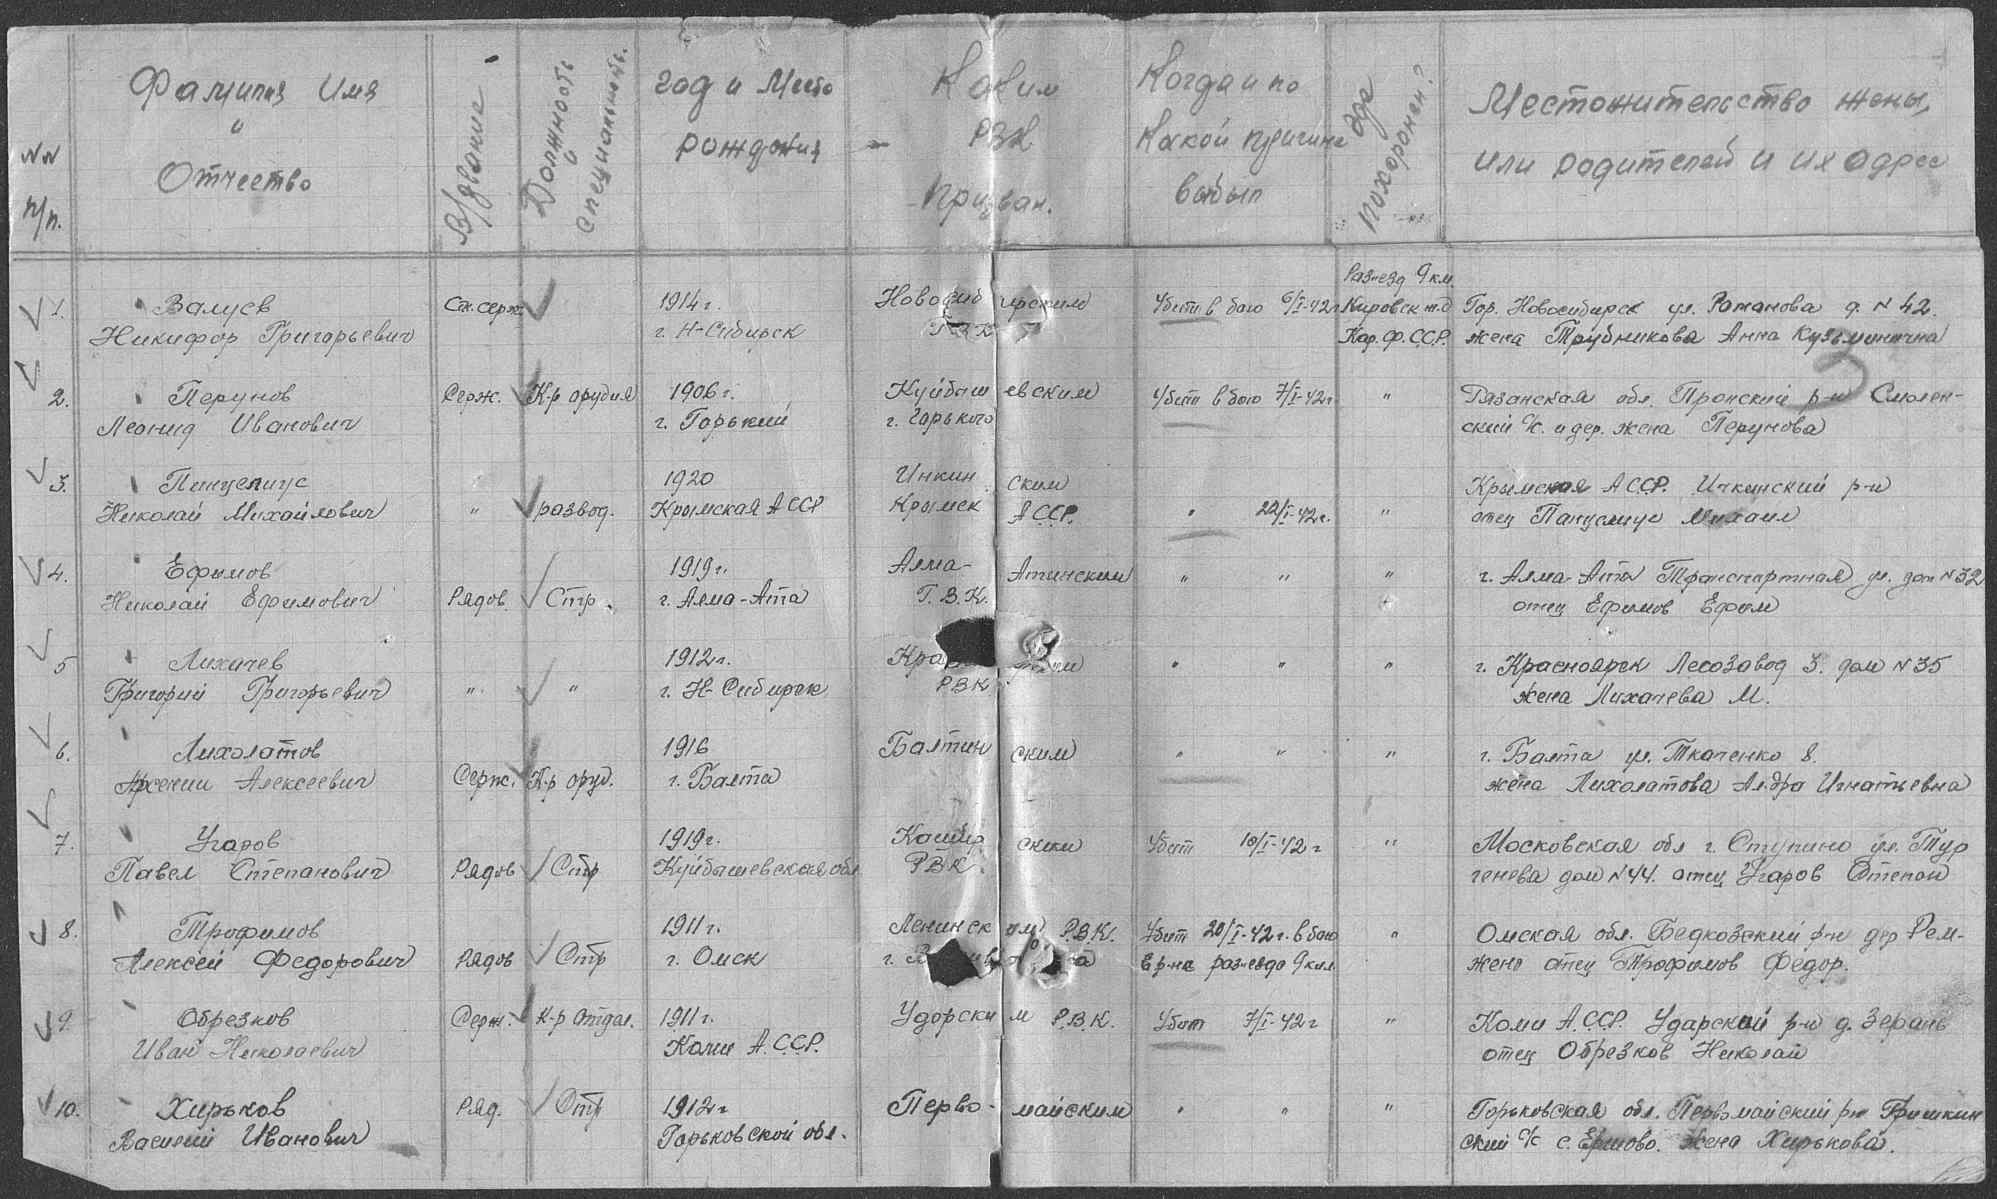 NN п/п.
Фамилия Имя и Отчество
В/звание
Должность и специальность.
год и Место рождения
Каким РВК призван.
Когда и по какой причине выбыл
где похоронен?
Местожительство жены, или родителей и их адрес
1. Валуев Ст. серж. 1914 г. Новосибирским Убит в бою 6/I-42 г. Разъезд 9 км. Кировск ж.д. Гор. Новосибирск ул. Романова д. N 42.
Никифор Григорьевич г. Н-Сибирск Кар.Ф.С.С.Р. жена Трубникова Анна Кузьминична
2. Перунов Серж. К-р орудия 1906 г. Куйбышевским Убит в бою 7/I-42 г. " Рязанская обл. Пронский р-н Смолен-
Леонид Иванович г. Горький г. Горького ский с/с. и дер. жена Перунова
3. Панцелиус 1920 Ским Крымская АССР. Ичкинский р-н
Николай Михайлович " развод. Крымская АССР Крымск АССР. " 22/I-42 г. " отец Михаил
4. Ефимов 1919 г. Алма-Атинским " " " г. Алма-Ата Транспортная ул. дом N 32
Николай Ефимович Рядов. Стр. г. Алма-Ата Г.В.К. отец Ефимов Ефим
5 Лихачев 1912 г. Кра " " " г. Красноярск Лесозавод 3. дом N 35
Григорий Григорьевич " " г. Н-Сибирск РВК жена Лихачева М.
6. Лихолатов 1916 Балтинским " " " г. Балта ул. Ткаченко 8.
Арсений Алексеевич Серж. К-р оруд. г. Балта жена Лихолатова Ал-дра Игнатьевна
7. Угаров 1919 г. Каширским Убит 10/I-42 г " Московская обл г. Ступино ул. Тур
Павел Степанович Рядов Стр Куйбышевская обл РВК. генева дом N 44. отец Угаров Степан
8. Трофимов 1911 г. Ленинским Р.В.К. Убит 20/I-42 г. в бою " Омская обл. р-н дер Рем-
Алексей Федорович Рядов Стр г. Омск г. в р-не разъезда 9 км. жено отец Трофимов Федор.
9. Обрезков Серж. К-р отдел. 1911 г. Удорским Р.В.К. Убит 7/I-42 г " Коми А.ССР. Ударский р-н д.
Иван Николаевич Коми А.С.С.Р. отец Обрезков Николай
10. Хирьков Ряд. Стр 1912 г Перво-майским " " " Горьковская обл. Первомайский р-н Гришкин
Василий Иванович Горьковской обл. ский с/с с. Ершово. Жена Хирькова.